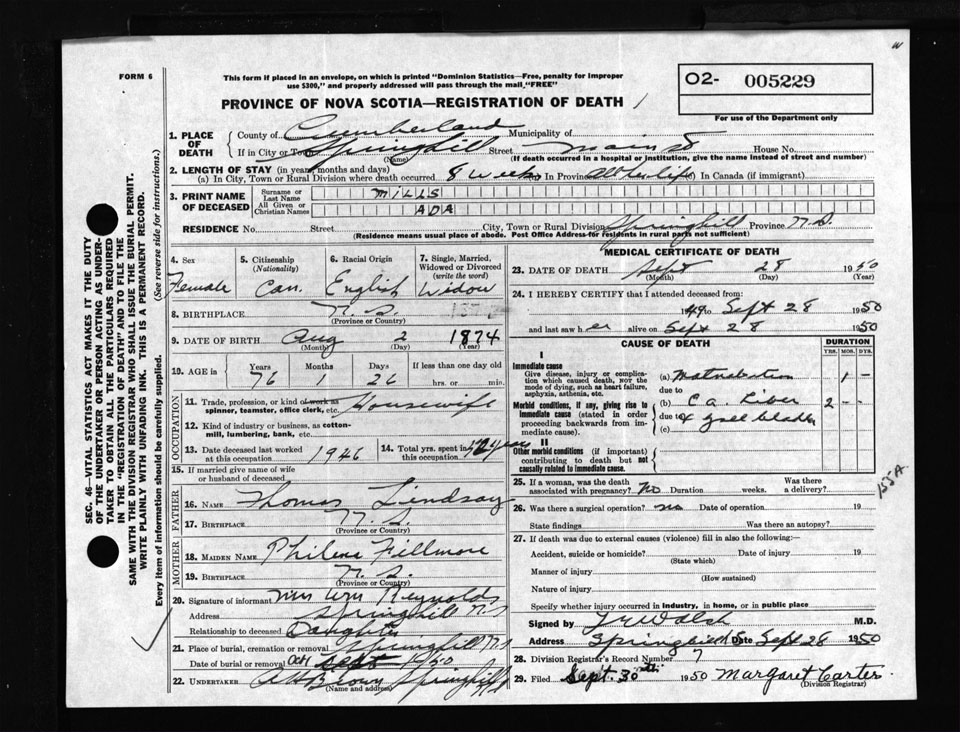 W
FORM 6
This form if placed in an envelope, on which is printed "Dominion Statistics—Free, penalty for improper
use $300," and properly addressed will pass through the mail, "FREE"
O2- 005229
For use of the Department only
PROVINCE OF NOVA SCOTIA—REGISTRATION OF DEATH
SEC. 46—VITAL STATISTICS ACT MAKES IT THE DUTY
OF THE UNDERTAKER OR PERSON ACTING AS UNDER-
TAKER TO OBTAIN ALL THE PARTICULARS REQUIRED
IN THE "REGISTRATION OF DEATH" AND TO FILE THE
SAME WITH THE DIVISION REGISTRAR WHO SHALL ISSUE THE BURIAL PERMIT.
WRITE PLAINLY WITH UNFADING INK. THIS IS A PERMANENT RECORD.
Every item of information should be carefully supplied. (See reverse side for instructions.)
1. PLACE OF DEATH
County of Cumberland Municipality of
If in City or Town Springhill Street Main St House No.
(Name) (If death occurred in a hospital or institution, give the name instead of street and number)
2. LENGTH OF STAY (in years, months and days)
(a) In City, Town or Rural Division where death occurred 8 weeks In Province all her life In Canada (if immigrant)
3. PRINT NAME OF DECEASED
Surname or Last Name MILLS
All Given or Christian Names ADA
RESIDENCE No. Street City, Town or Rural Division Springhill Province N.S.
(Residence means usual place of abode. Post Office Address for residents in rural parts not sufficient)
4. Sex Female
5. Citizenship (Nationality) Can.
6. Racial Origin English
7. Single, Married, Widowed or Divorced (write the word) Widow
8. BIRTHPLACE N.S.
(Province or Country)
9. DATE OF BIRTH Aug 2 1874
(Month) (Day) (Year)
10. AGE in Years 76 Months 1 Days 26 If less than one day old hrs. or min.
OCCUPATION
11. Trade, profession, or kind of work as spinner, teamster, office clerk, etc. Housewife
12. Kind of industry or business, as cotton-mill, lumbering, bank, etc.
13. Date deceased last worked at this occupation 1946
14. Total yrs. spent in this occupation years
15. If married give name of wife or husband of deceased
FATHER
16. NAME Thomas Lindsay
17. BIRTHPLACE N.S.
MOTHER
18. MAIDEN NAME Philene Fillmore
19. BIRTHPLACE N.S.
(Province or Country)
20. Signature of informant Mrs Wm Reynolds
Address Springhill N.S
Relationship to deceased Daughter
21. Place of burial, cremation or removal Springhill N.S
Date of burial or removal Oct 1/50
22. UNDERTAKER A H Brown Springhill
(Name and address)
MEDICAL CERTIFICATE OF DEATH
23. DATE OF DEATH Sept 28 1950
(Month) (Day) (Year)
24. I HEREBY CERTIFY that I attended deceased from:
49 to Sept 28 1950
and last saw her alive on Sept 28 1950
CAUSE OF DEATH
DURATION
YRS. MOS. DYS.
I
Immediate cause
Give disease, injury or complication which caused death, not the mode of dying, such as heart failure, asphyxia, asthenia, etc.
(a) - 1 -
due to
Morbid conditions, if any, giving rise to immediate cause (stated in order proceeding backwards from immediate cause).
(b) Ca. Liver 2 - -
due to & gall bladder
(c)
II
Other morbid conditions (if important) contributing to death but not causally related to immediate cause.
155A
25. If a woman, was the death associated with pregnancy? No Duration weeks. Was there a delivery?
26. Was there a surgical operation? no Date of operation 19
State findings Was there an autopsy?
27. If death was due to external causes (violence) fill in also the following:—
Accident, suicide or homicide? Date of injury 19
(State which)
Manner of injury
(How sustained)
Nature of injury
Specify whether injury occurred in industry, in home, or in public place
Signed by Walsh M.D.
Address Springhill NS Date Sept 28 1950
28. Division Registrar's Record Number 7
29. Filed Sept. 30th 1950 Margaret Carter
(Division Registrar)